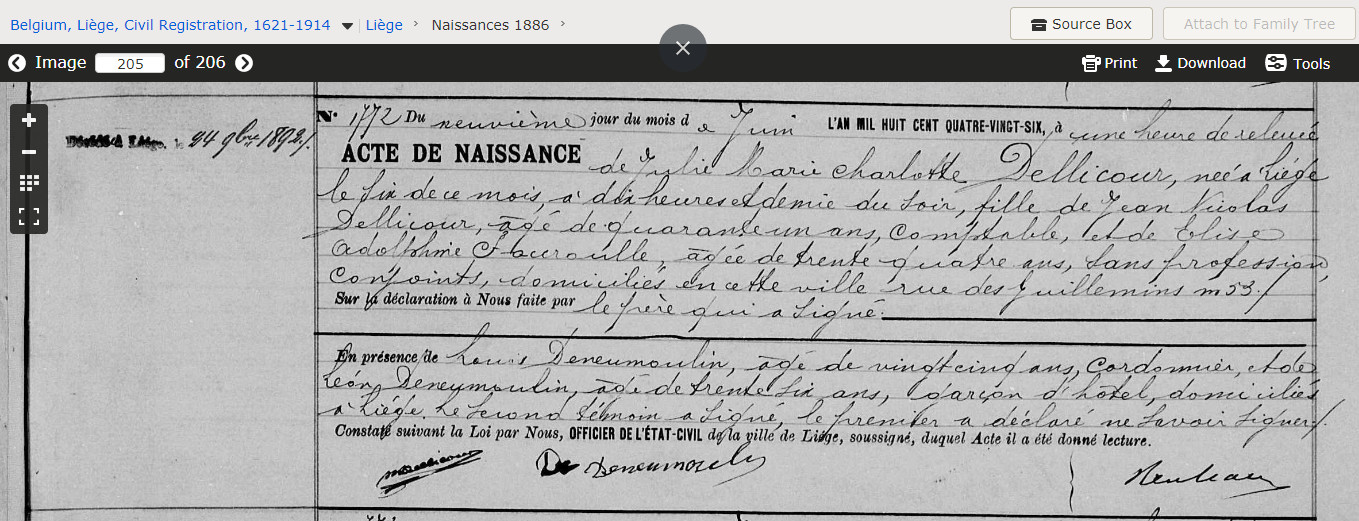 Belgium, Liège, Civil Registration, 1621-1914 Liège Naissances 1886
Source Box Attach to Family Tree
Image 205 of 206 Print Download Tools
N° 1772 Du neuvième jour du mois de Juin L'AN MIL HUIT CENT QUATRE-VINGT-SIX, à une heure de relevée
Décédée à Liége, le 24 9bre 1892./.
ACTE DE NAISSANCE de Julie Marie Charlotte Dellicour, née à Liége
le six de ce mois, à dix heures et demie du soir, fille de Jean Nicolas
Dellicour, âgé de quarante un ans, Comptable, et de Elise
Adolphine Fauroulle, âgée de trente quatre ans, sans profession,
conjoints, domiciliés en cette ville rue des Guillemins n° 53./
Sur la déclaration à Nous faite par le père qui a signé.
En présence de Louis Deneumoulin, âgé de vingt cinq ans, Cordonnier, et de
Léon Deneumoulin, âgé de trente six ans, garçon d'hôtel, domiciliés
à Liége. Le second témoin a signé, le premier a déclaré ne savoir signer./.
Constaté suivant la Loi par Nous, OFFICIER DE L'ÉTAT-CIVIL de la ville de Liége, soussigné, duquel Acte il a été donné lecture.
Dellicour De Deneumoulin